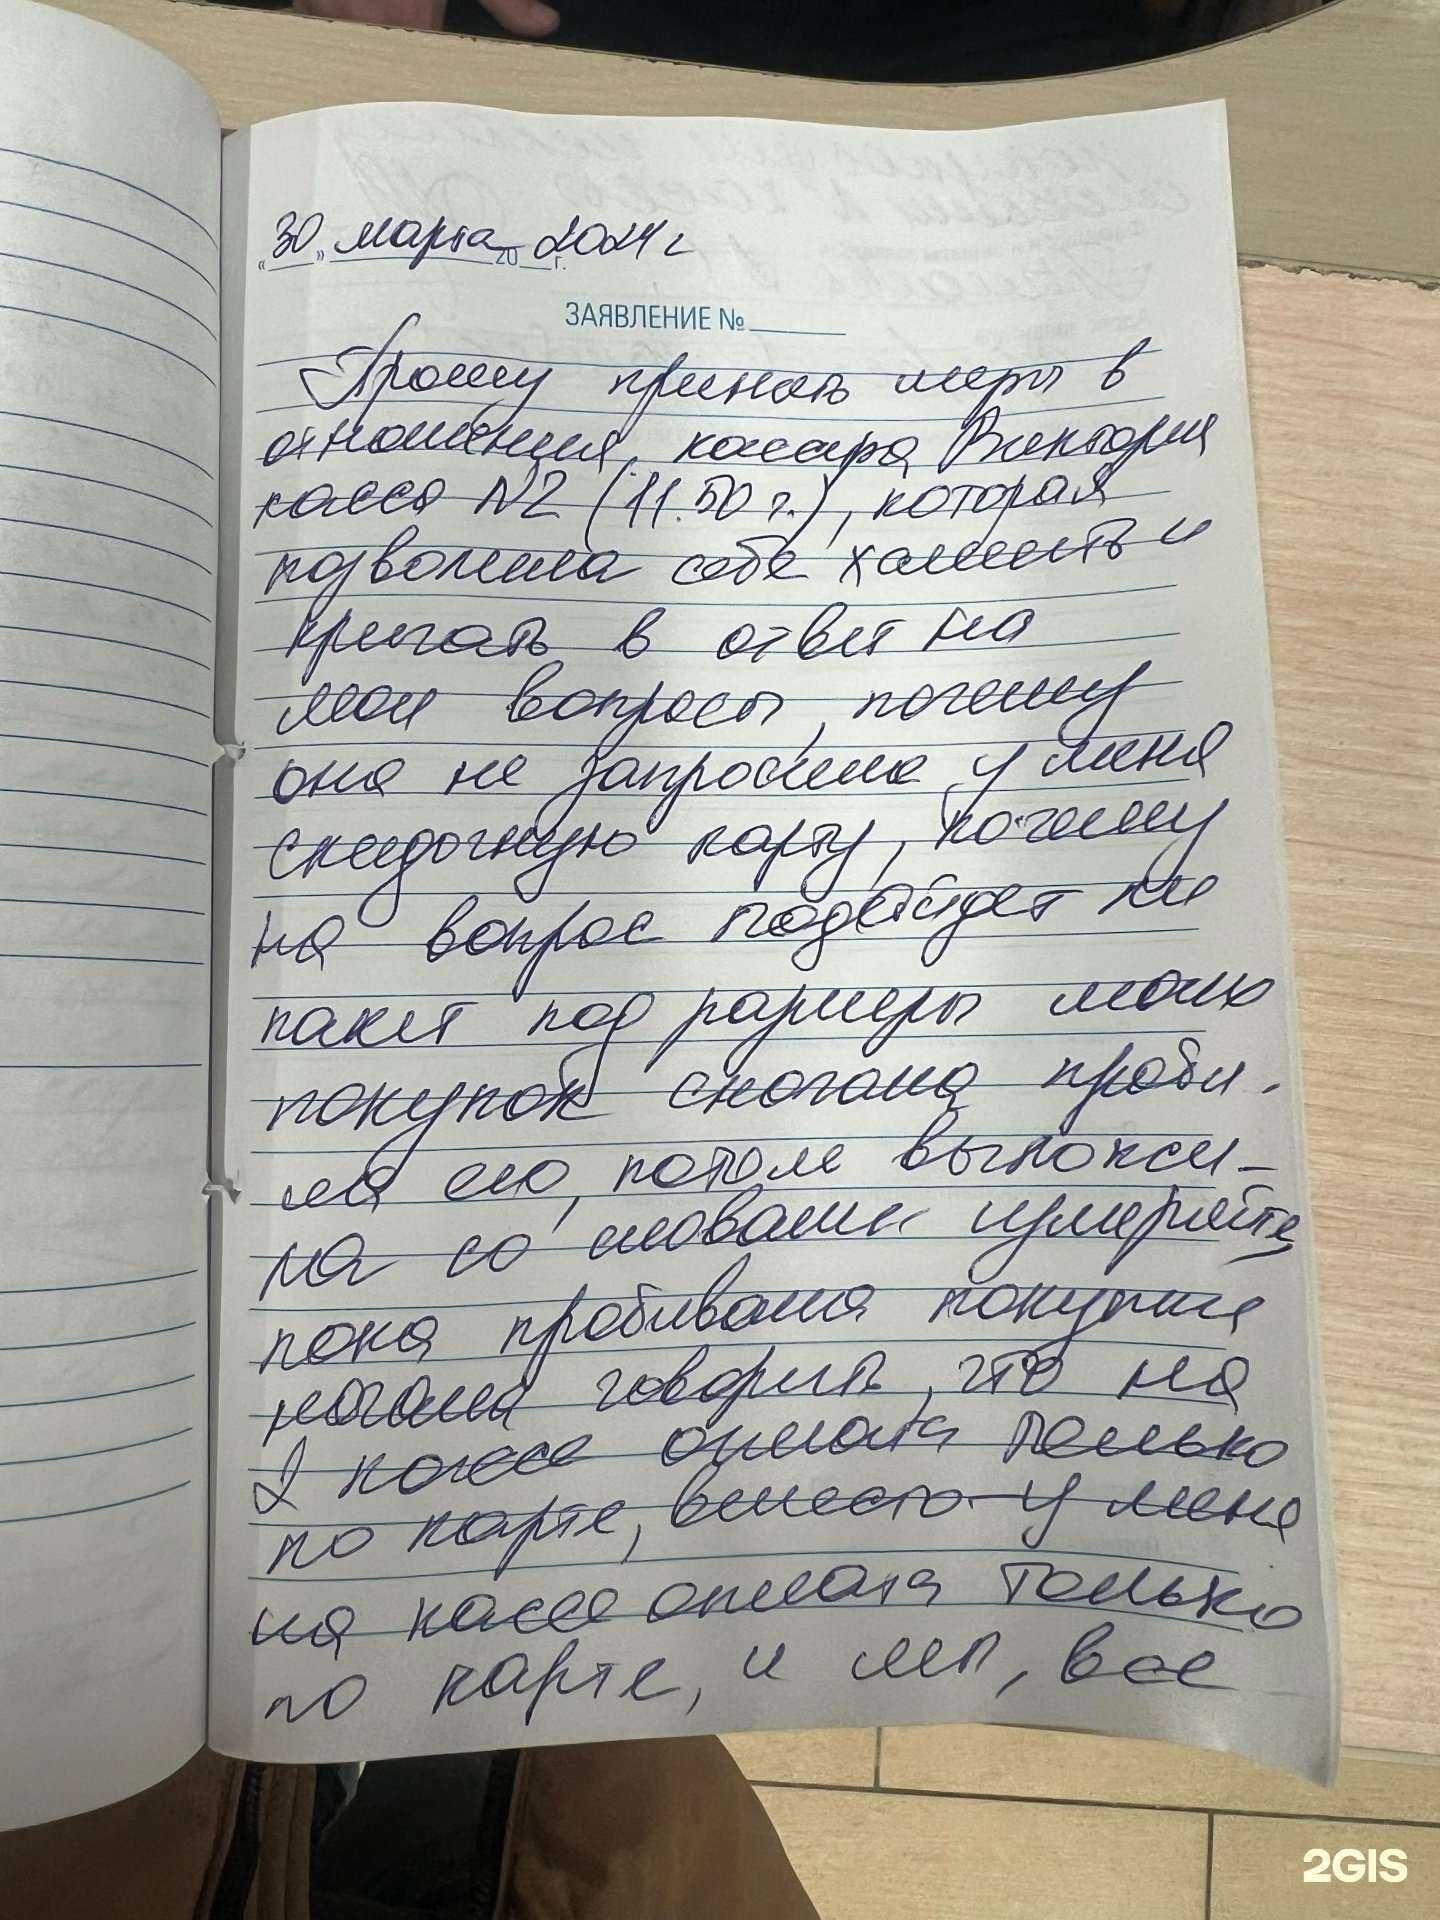 «30» марта 20__г. 2024 г
ЗАЯВЛЕНИЕ №
Прошу принять меры в
отношения кассира Виктория
касса №2 (11.50 г.), которая
позволила себе хамить и
кричать в ответ на
мои вопросы, почему
она не запросила у меня
скидочную карту, почему
на вопрос подойдет ли
пакет под размеры моих
покупок сначала проби-
ла его, потом выложи-
ла со словами измеряйте,
пока пробивала покупки
начала говорить, что на
2 кассе оплата только
по карте, вместо у меня
на кассе оплата только
по карте, и мы, все
2GIS